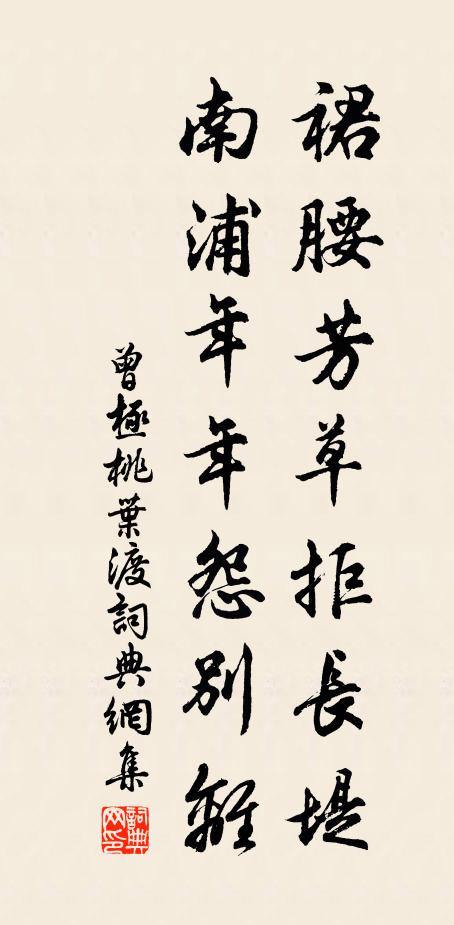 裙腰芳草拒長堤
南浦年年怨別離
曾極桃葉渡詞典網集
詞典网印